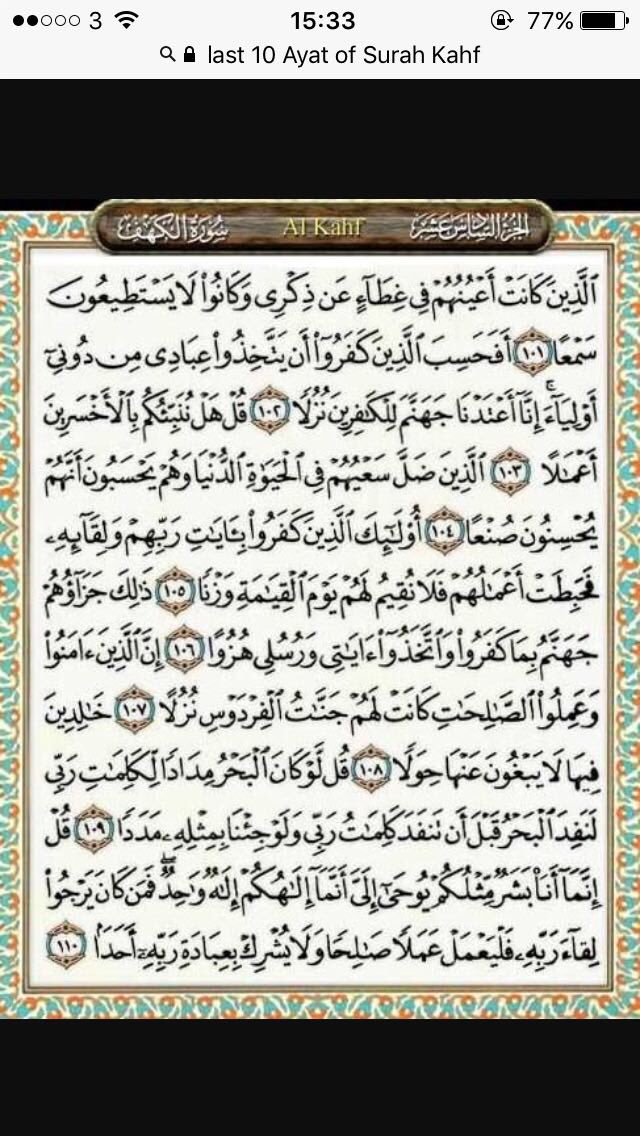 3 15:33 77%
last 10 Ayat of Surah Kahf
سُورَةُ الكَهْف Al Kahf الجُزءُ السَّادِسَ عَشَرَ
ٱلَّذِينَ كَانَتْ أَعْيُنُهُمْ فِى غِطَآءٍ عَن ذِكْرِى وَكَانُوا۟ لَا يَسْتَطِيعُونَ
سَمْعًا ١٠١ أَفَحَسِبَ ٱلَّذِينَ كَفَرُوٓا۟ أَن يَتَّخِذُوا۟ عِبَادِى مِن دُونِىٓ
أَوْلِيَآءَ ۚ إِنَّآ أَعْتَدْنَا جَهَنَّمَ لِلْكَٰفِرِينَ نُزُلًا ١٠٢ قُلْ هَلْ نُنَبِّئُكُم بِٱلْأَخْسَرِينَ
أَعْمَٰلًا ١٠٣ ٱلَّذِينَ ضَلَّ سَعْيُهُمْ فِى ٱلْحَيَوٰةِ ٱلدُّنْيَا وَهُمْ يَحْسَبُونَ أَنَّهُمْ
يُحْسِنُونَ صُنْعًا ١٠٤ أُو۟لَٰٓئِكَ ٱلَّذِينَ كَفَرُوا۟ بِـَٔايَٰتِ رَبِّهِمْ وَلِقَآئِهِۦ
فَحَبِطَتْ أَعْمَٰلُهُمْ فَلَا نُقِيمُ لَهُمْ يَوْمَ ٱلْقِيَٰمَةِ وَزْنًا ١٠٥ ذَٰلِكَ جَزَآؤُهُمْ
جَهَنَّمُ بِمَا كَفَرُوا۟ وَٱتَّخَذُوٓا۟ ءَايَٰتِى وَرُسُلِى هُزُوًا ١٠٦ إِنَّ ٱلَّذِينَ ءَامَنُوا۟
وَعَمِلُوا۟ ٱلصَّٰلِحَٰتِ كَانَتْ لَهُمْ جَنَّٰتُ ٱلْفِرْدَوْسِ نُزُلًا ١٠٧ خَٰلِدِينَ
فِيهَا لَا يَبْغُونَ عَنْهَا حِوَلًا ١٠٨ قُل لَّوْ كَانَ ٱلْبَحْرُ مِدَادًا لِّكَلِمَٰتِ رَبِّى
لَنَفِدَ ٱلْبَحْرُ قَبْلَ أَن تَنفَدَ كَلِمَٰتُ رَبِّى وَلَوْ جِئْنَا بِمِثْلِهِۦ مَدَدًا ١٠٩ قُلْ
إِنَّمَآ أَنَا۠ بَشَرٌ مِّثْلُكُمْ يُوحَىٰٓ إِلَىَّ أَنَّمَآ إِلَٰهُكُمْ إِلَٰهٌ وَٰحِدٌ ۖ فَمَن كَانَ يَرْجُوا۟
لِقَآءَ رَبِّهِۦ فَلْيَعْمَلْ عَمَلًا صَٰلِحًا وَلَا يُشْرِكْ بِعِبَادَةِ رَبِّهِۦٓ أَحَدًۢا ١١٠